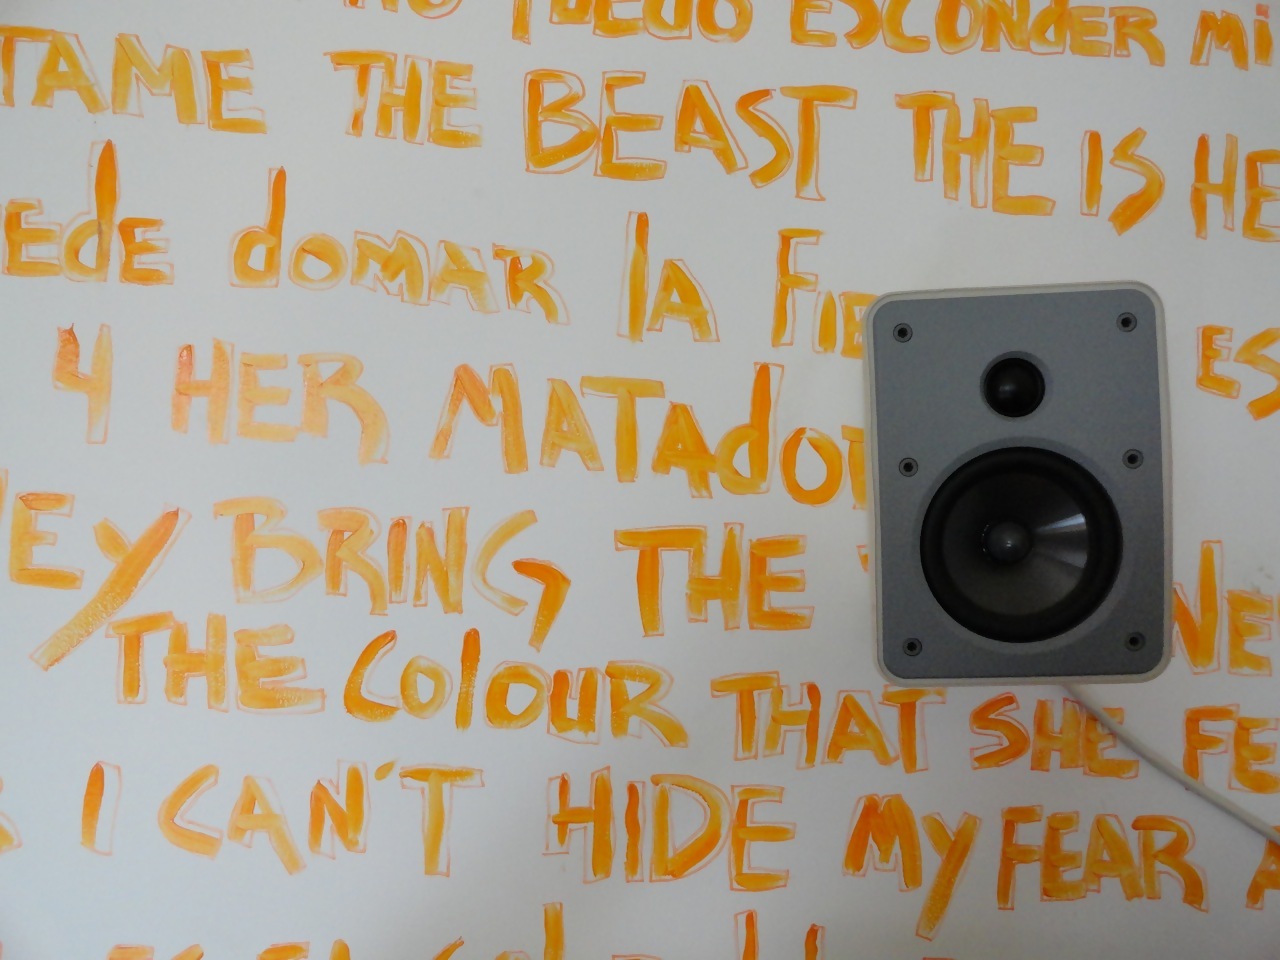 PUEDO ESCONDER Mi
TAME THE BEAST THE IS HE
EdE dOMAR lA FiE ES
4 HER MATAdO
EY BRING THE NE
THE COlOUR THAT SHE FE
I CAN'T HIDE MY FEAR A